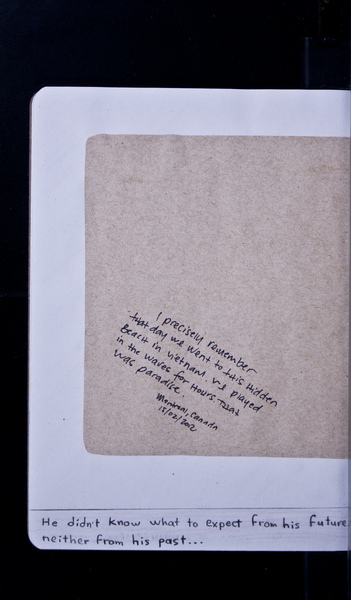 I precisely remember
that day we went to this hidden
Beach in vietnam. we played
in the waves for hours. That
was paradise.
Montreal, Canada
15/02/2012
He didn't know what to expect from his future
neither from his past...